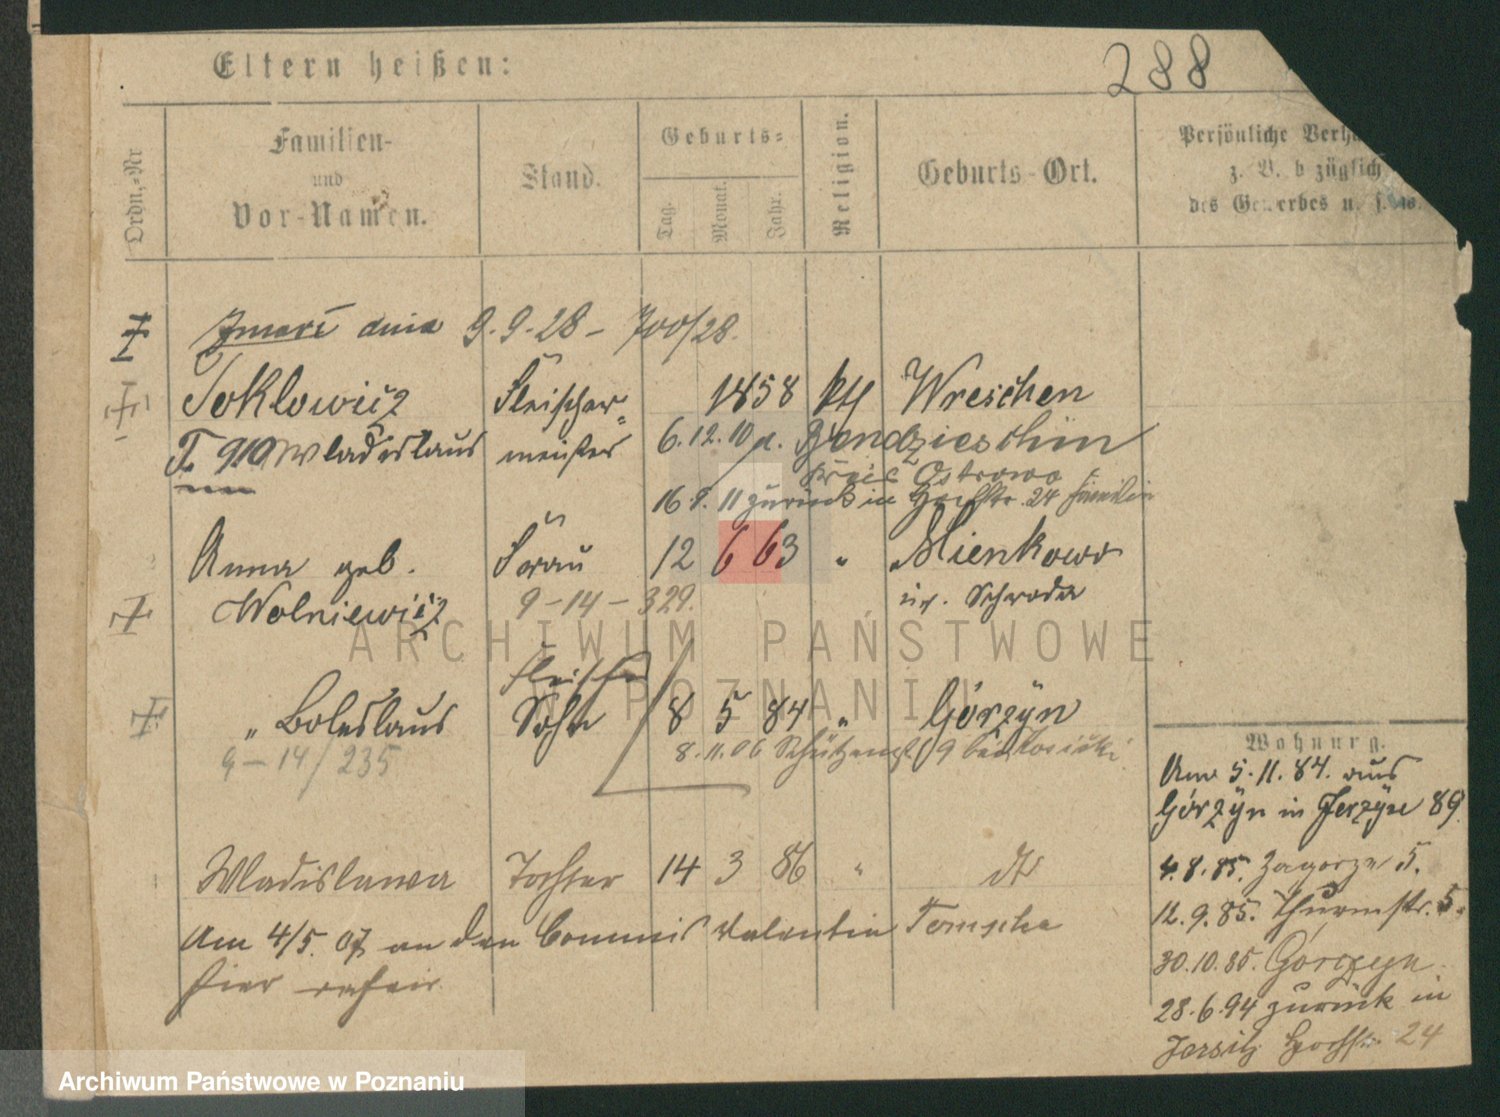 288
Eltern heißen:
Ordn.-Nr
Familien-
und
Vor-Namen.
Stand.
Geburts-
Tag.
Monat.
Jahr.
Religion.
Geburts-Ort.
Persönliche Verh
z. B. b züglich
des Gewerbes u. s. w.
Zmarł dnia 9.9.28 - 700/28.
Soklowicz Fleischer- 1858 kth Wreschen
T. 910 Wladislaus meister 6.12.10 n. Bendzieschin
Kreis Ostrowo
16 8. 11 zurück in Hochstr. 24 Familie
Anna geb. Frau 12 6 63 " Mienkowo
Wolniewicz 9-14-329. Schroda
Fleischer
" Boleslaus Sohn 8 5 84 " Górzyn
9-14/235 8.11.06 Schützenstr 9 bei
Wladislawa Tochter 14 3 86 " dto
Am 4/5.07 an den Commis Valentin Tomscha
hier
Wohnung.
Am 5.11.84. aus
Górzyn in Jerzyce 89.
4.8.85. Zagorze 5.
12.9.85. Thurmstr. 5.
30.10.85. Gorczyn
28.6.94 zurück in
Jersitz Hochstr. 24
ARCHIWUM PAŃSTWOWE
W POZNANIU
Archiwum Państwowe w Poznaniu